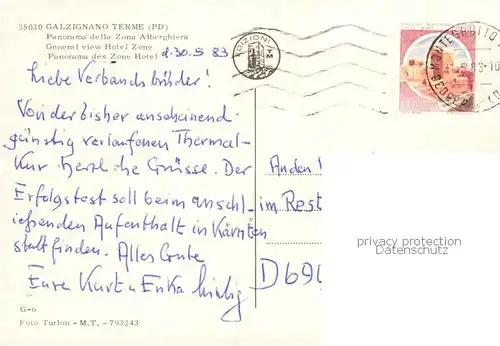 35030 GALZIGNANO TERME (PD)
Panorama della Zona Alberghiera
General view Hotel Zone
Panorama des Zone Hotel
d. 30.5 83
EDIZIONI
M T
Liebe Verbandsbrüder!
Von der bisher anscheinend
günstig verlaufenen Thermal-
Kur herzliche Grüsse. Der
Erfolgstest soll beim anschl-
ießenden Aufenthalt in Kärnten
stattfinden. Alles Gute
Eure Kurt u Erika
An den
im Rest
D 69
privacy protection
Datenschutz
G-6
Foto Turlon - M.T. - 793243